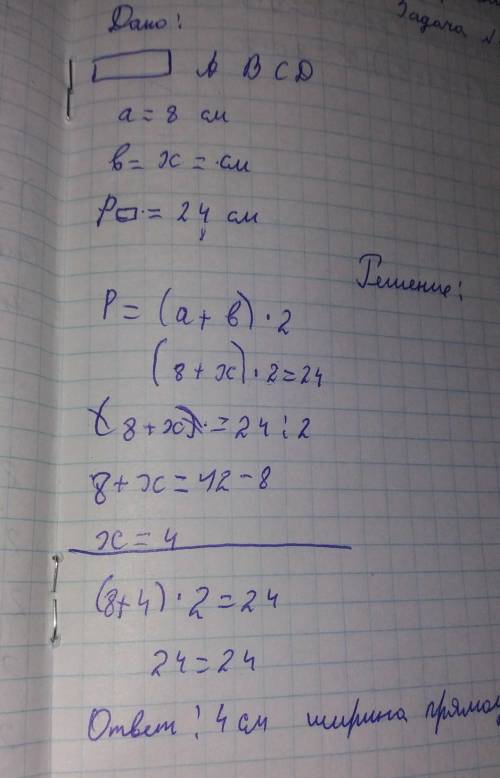 Задача
Дано:
A B C D
a = 8 см
в = x = см
P▭ = 24 см
Решение:
P = (a + в) · 2
(8 + x) · 2 = 24
(8 + x) = 24 : 2
8 + x = 12 - 8
x = 4
(8+4) · 2 = 24
24 = 24
Ответ: 4 см ширина прямоу